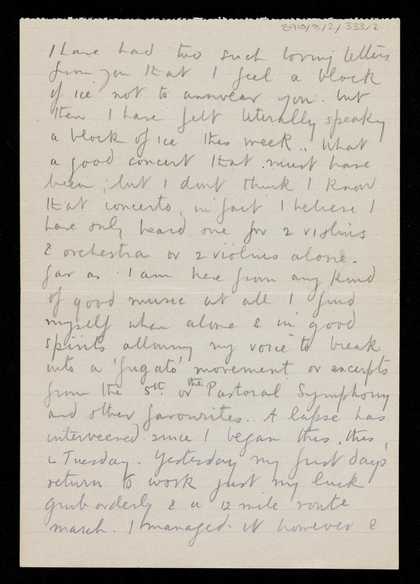 8910/3/2/333/2
I have had two such loving letters
from you that I feel a block
of ice not to answear you. but
then I have felt literally speaking
a block of ice this week.. What
a good concert that must have
been; but I don't think I know
that concerto, in fact I believe I
have only heard one for 2 violins
& orchestra or 2 violins alone.
far as I am here from any kind
of good music at all I find
myself when alone & in good
spirits allowing my voice to break
into a 'fugato' movement or excerpts
from the 5th or the Pastoral Symphony
and other favourites. A lapse has
interveened since I began this. this
is Tuesday. Yesterday my first days
return to work just my luck
grub orderly & a 12 mile route
march. I managed it however &